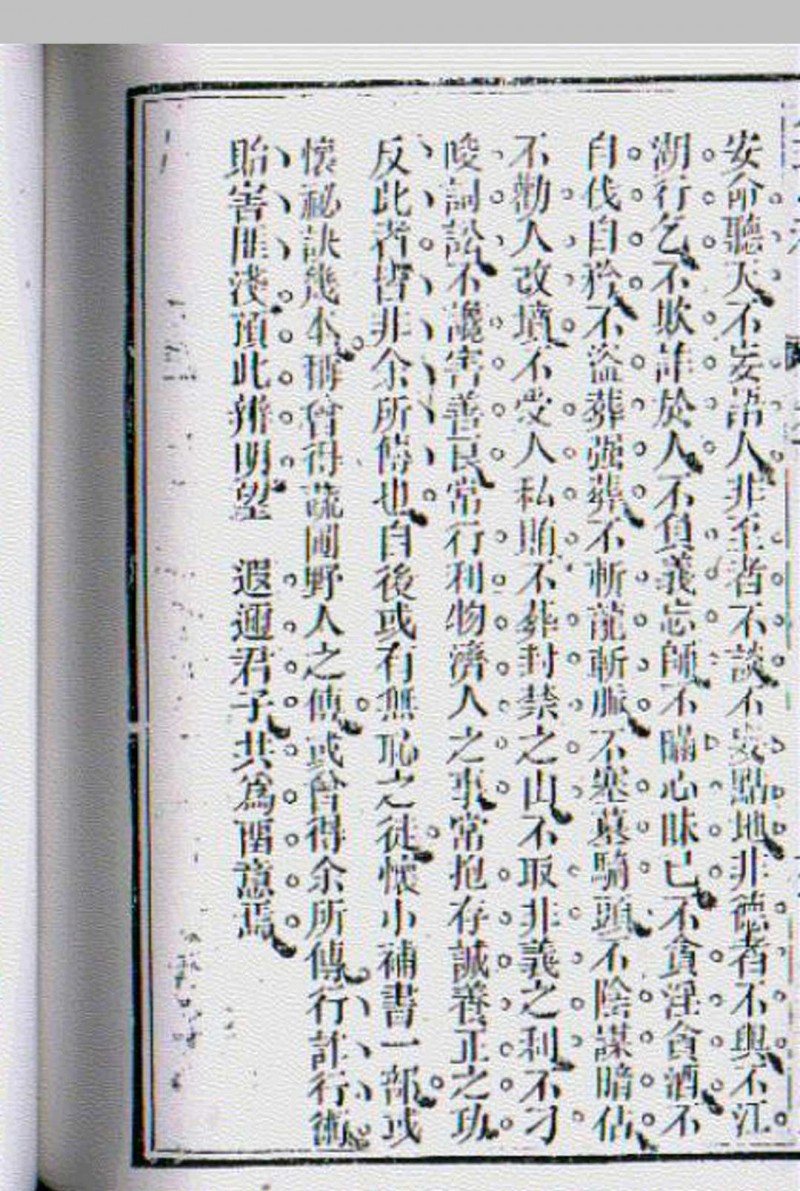 安命聽天不妄語人非至者不談不妄點地非德者不與不江
湖行乞不欺詐於人不負義忘師不瞞心昧己不貪淫貪酒不
自伐自矜不盜葬强葬不斬龍斬脈不塞墓騎頭不陰謀暗佔
不勸人改墳不受人私賄不葬封禁之山不取非義之利不刁
唆詞訟不讒害善良常行利物濟人之事常抱存誠養正之功
反此者皆非余所傳也自後或有無恥之徒懷小補書一部或
懷祕訣幾本稱曾得蔬圃野人之傳或曾得余所傳行詐行術
貽害匪淺預此辨明望 遐邇君子共爲畱意焉